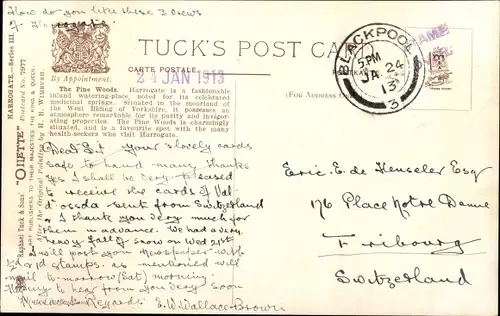 How do you like these 3 views
of Harrogate
TUCK'S POST CARD
CARTE POSTALE
By Appointment.
21 JAN 1913
BLACKPOOL
5 PM
JA 24
13
3
(FOR ADDRESS ON
HARROGATE.—Series III.
"OILETTE" Postcard No. 7977
Raphael Tuck & Sons'
ART PUBLISHERS TO THEIR MAJESTIES THE KING & QUEEN.
After the Original Painting by H. B. WIMBUSH.
The Pine Woods. Harrogate is a fashionable
inland watering-place, noted for its celebrated
medicinal springs. Situated in the moorland of
the West Riding of Yorkshire, it possesses an
atmosphere remarkable for its purity and invigor-
ating properties. The Pine Woods is charmingly
situated, and is a favourite spot with the many
health-seekers who visit Harrogate.
Dear Sir Your 4 lovely cards
safe to hand many thanks
Yes I shall be very pleased
to receive the cards of Val
d'ossda sent from Switzerland
& I thank you very much for
them in advance. We had a very
heavy fall of snow on Wed 21st
will post you newspaper with
½d & 1d stamps as mentioned will
mail to-morrow (Sat) morning.
Hoping to hear from you very soon
Regards E. W. Wallace-Brown
Eric. E. de Henseler Esq
176 Place Notre Dame
Fribourg
Switzerland